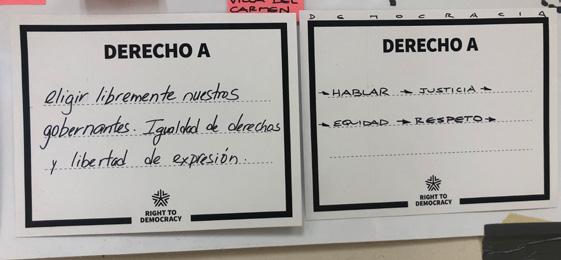 VILLA DEL
CARMEN
DERECHO A
eligir libremente nuestros
gobernantes. Igualdad de derechos
y libertad de expresión.
RIGHT TO
DEMOCRACY
DEMOCRACIA
DERECHO A
→ HABLAR → JUSTICIA →
→ EQUIDAD → RESPETO →
RIGHT TO
DEMOCRACY